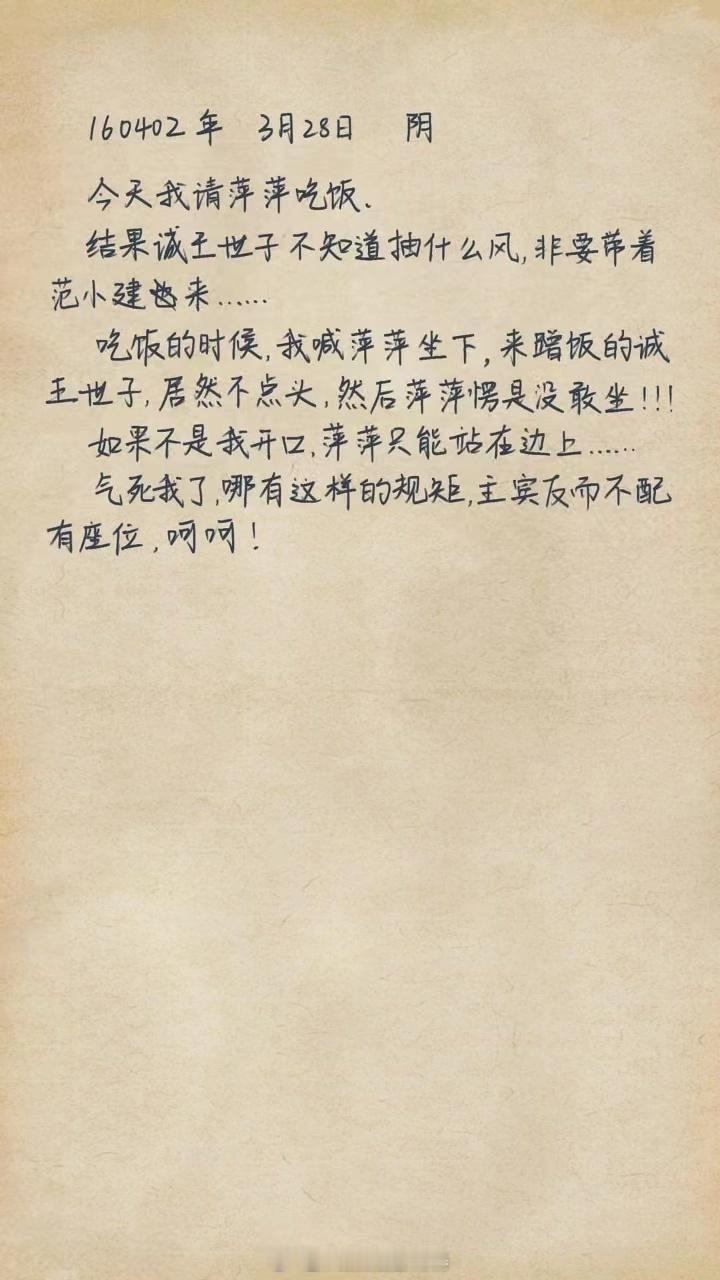 160402年 3月28日 阴
今天我请萍萍吃饭.
结果诚王世子不知道抽什么风,非要带着
范小建也来……
吃饭的时候,我喊萍萍坐下,来蹭饭的诚
王世子,居然不点头,然后萍萍愣是没敢坐!!!
如果不是我开口,萍萍只能站在边上……
气死我了,哪有这样的规矩,主宾反而不配
有座位,呵呵!